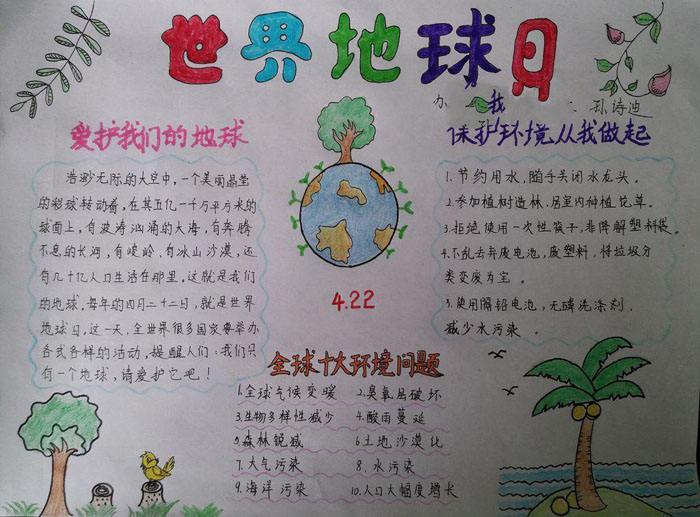 世界地球日
办 我 孙诗迪
爱护我们的地球
浩渺无际的太空中,一个美丽晶莹
的彩球转动着,在其五亿一千万平方米的
球面上,有波涛汹涌的大海,有奔腾
不息的长河,有峻岭、有冰山沙漠,还
有几十亿人口生活在那里。这就是我们
的地球。每年的四月二十二日,就是世界
地球日。这一天,全世界很多国家要举办
各式各样的活动,提醒人们:我们只
有一个地球,请爱护它吧!
4.22
保护环境从我做起
1.节约用水,随手关闭水龙头。
2.参加植树造林,居室内种植花草。
3.拒绝使用一次性筷子,非降解塑料袋。
4.不乱丢弃废电池,废塑料,将垃圾分
类变废为宝。
5.使用隔铅电池,无磷洗涤剂.
减少水污染。
全球十大环境问题
1.全球气候变暖 2.臭氧层破坏
3.生物多样性减少 4.酸雨蔓延
5.森林锐减 6.土地沙漠化
7.大气污染 8.水污染
9.海洋污染 10.人口大幅度增长